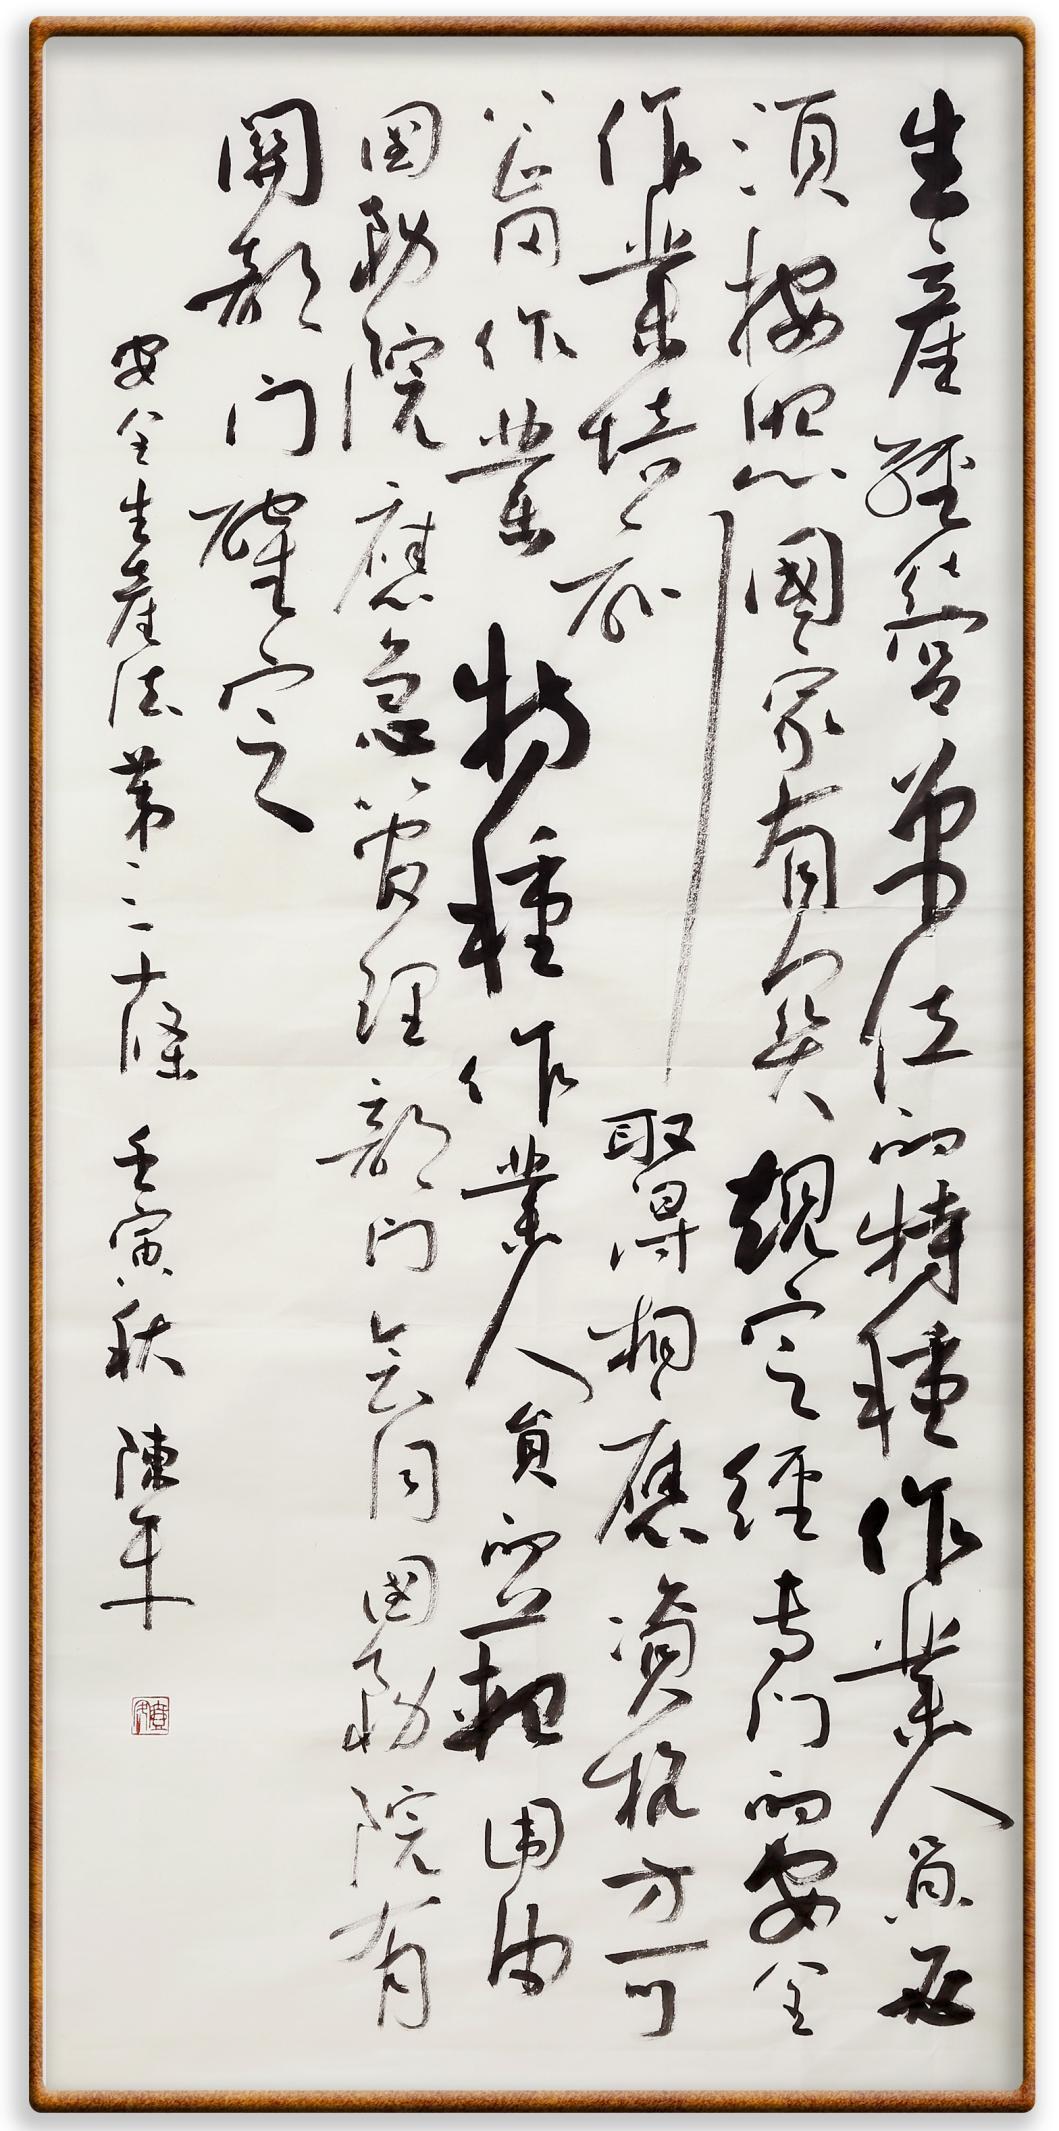 生產經營單位的特種作業人員必
須按照國家有關規定經专门的安全
作業培訓取得相應資格方可
上崗作業特種作業人員的範围由
国務院應急管理部门会同国務院有
關部门確定
安全生產法第三十條 壬寅秋 陳